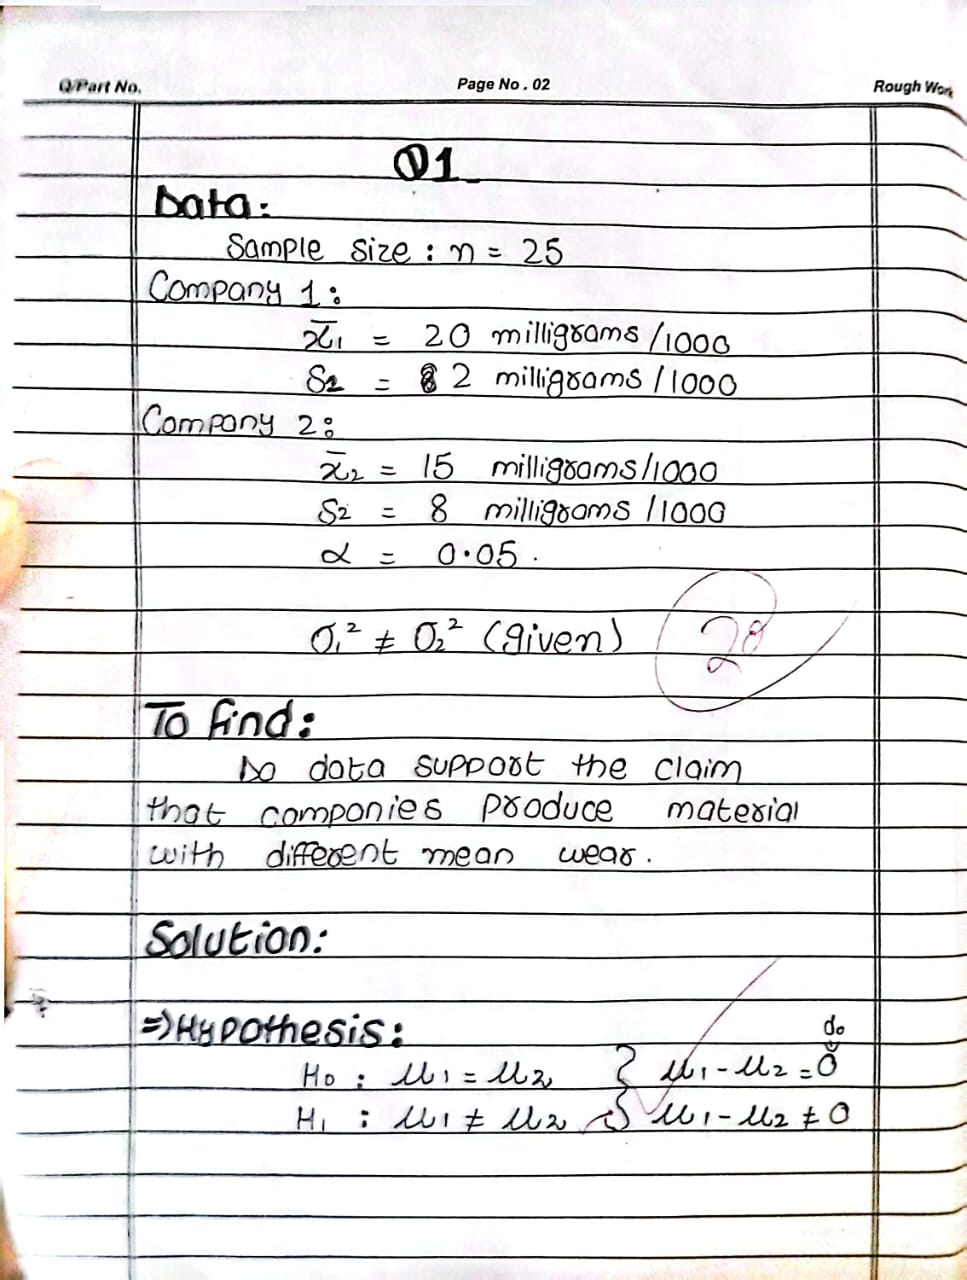 Q/Part No. Page No. 02 Rough Work
Q1
Data:
Sample size : n = 25
Company 1:
x̄₁ = 20 milligrams/1000
S₂ = 2 milligrams/1000
Company 2:
x̄₂ = 15 milligrams/1000
S₂ = 8 milligrams/1000
α = 0.05.
σ₁² ≠ σ₂² (given)
28
To find:
Do data support the claim
that companies produce material
with different mean wear.
Solution:
do
⇒Hypothesis:
H₀ : μ₁ = μ₂ } μ₁ - μ₂ = 0
H₁ : μ₁ ≠ μ₂ } μ₁ - μ₂ ≠ 0